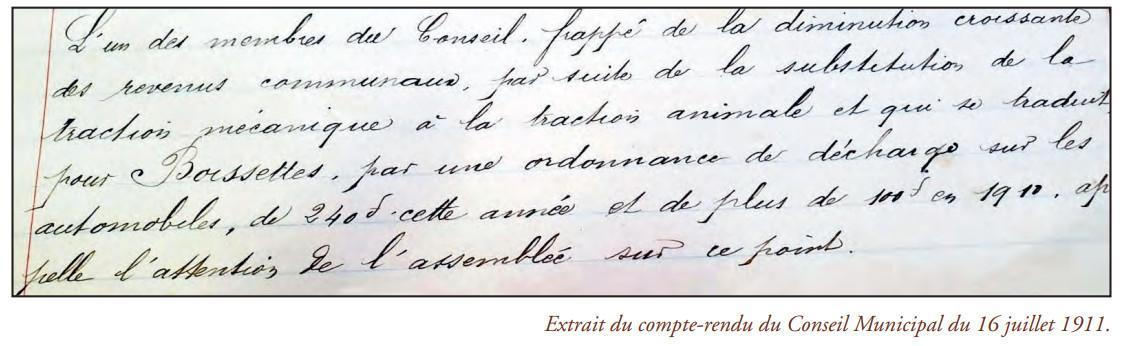 L'un des membres du Conseil, frappé de la diminution croissante
des revenus communaux, par suite de la substitution de la
traction mécanique à la traction animale et qui se traduit,
pour Boissettes, par une ordonnance de décharge sur les
automobiles, de 240f cette année et de plus de 100f en 1910, ap
pelle l'attention de l'assemblée sur ce point.
Extrait du compte-rendu du Conseil Municipal du 16 juillet 1911.